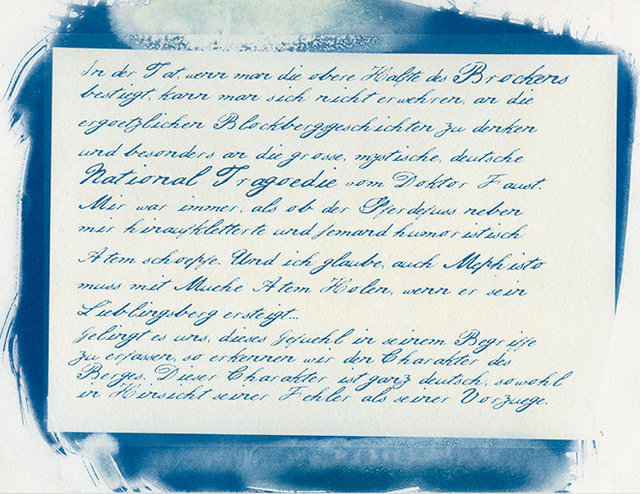 In der Tat, wenn man die obere Haelfte des Brockens
besteigt, kann man sich nicht erwehren, an die
ergoetzlichen Blocksbergsgeschichten zu denken
und besonders an die grosse, mystische, deutsche
National Tragoedie vom Doktor Faust.
Mir war immer, als ob der Pferdefuss neben
mir hinaufkletterte und jemand humoristisch
Atem schoepfe. Und ich glaube, auch Mephisto
muss mit Muehe Atem Holen, wenn er sein
Lieblingsberg ersteigt...
Gelingt es uns, dieses Gefuehl in seinem Begriffe
zu erfassen, so erkennen wir den Charakter des
Berges. Dieser Charakter ist ganz deutsch, sowohl
in Hinsicht seiner Fehler als seiner Vorzuege.